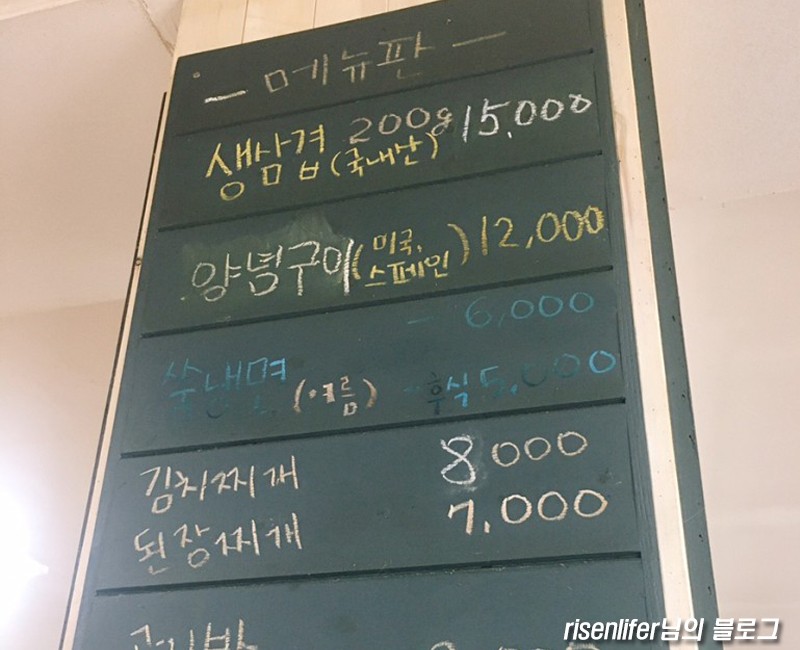 - 메뉴판 -
생삼겹 200g 15,000
(국내산)
양념구이 (미국, 스페인) 12,000
쑥냉면 - 6,000
(여름) - 후식 5,000
김치찌개 8000
된장찌개 7,000
risenlifer님의 블로그